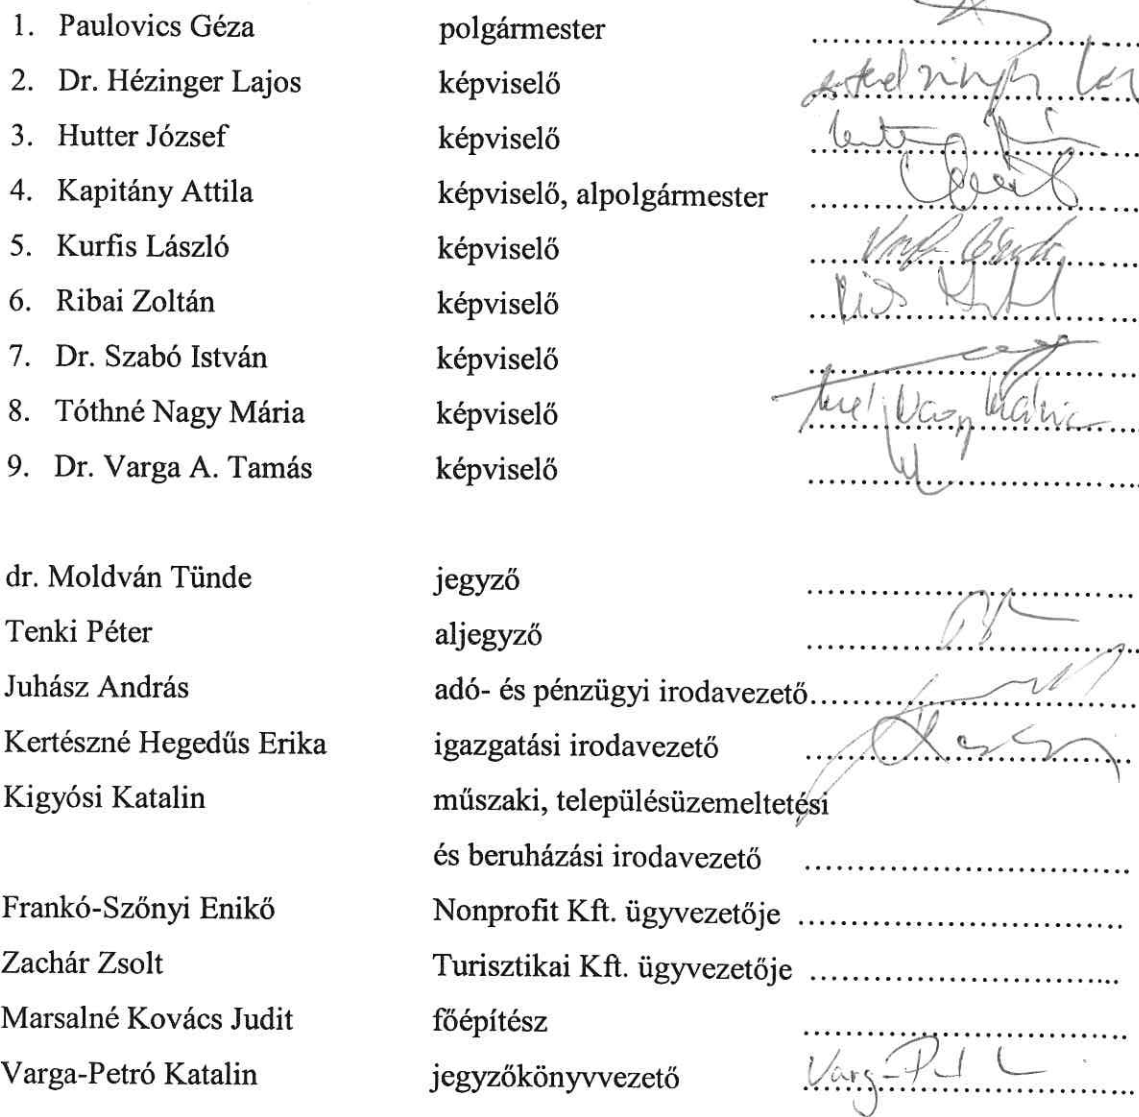 1. Paulovics Géza polgármester ........................................
2. Dr. Hézinger Lajos képviselő ........................................
3. Hutter József képviselő ........................................
4. Kapitány Attila képviselő, alpolgármester ........................................
5. Kurfis László képviselő ........................................
6. Ribai Zoltán képviselő ........................................
7. Dr. Szabó István képviselő ........................................
8. Tóthné Nagy Mária képviselő ........................................
9. Dr. Varga A. Tamás képviselő ........................................
dr. Moldván Tünde jegyző ........................................
Tenki Péter aljegyző ........................................
Juhász András adó- és pénzügyi irodavezető ........................................
Kertészné Hegedűs Erika igazgatási irodavezető ........................................
Kigyósi Katalin műszaki, településüzemeltetési
és beruházási irodavezető ........................................
Frankó-Szőnyi Enikő Nonprofit Kft. ügyvezetője ........................................
Zachár Zsolt Turisztikai Kft. ügyvezetője ........................................
Marsalné Kovács Judit főépítész ........................................
Varga-Petró Katalin jegyzőkönyvvezető ........................................